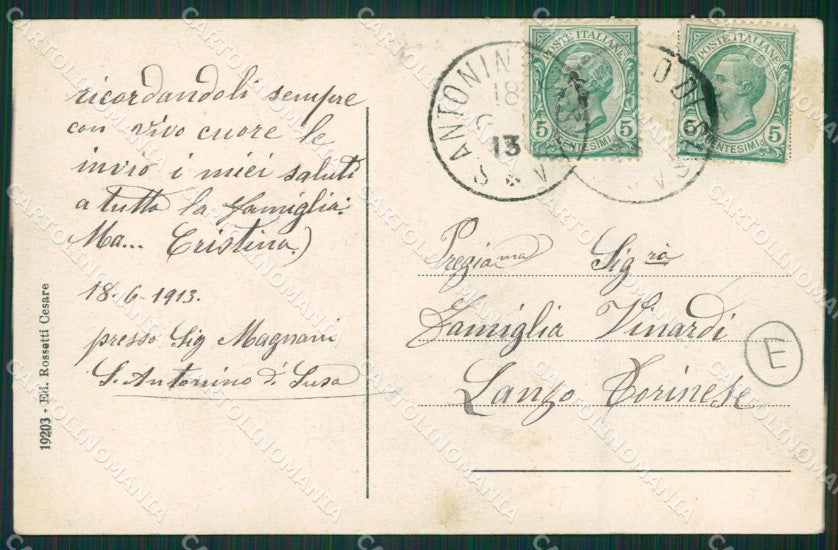 ricordandoli sempre
con vivo cuore le
invio i miei saluti
a tutta la famiglia.
Ma... Cristina)
18-6-1913.
presso Sig Magnani
S. Antonino di Susa
19203 - Ed. Rossetti Cesare
POSTE ITALIANE
5 5
CENTESIMI
POSTE ITALIANE
5 5
CENTESIMI
S. ANTONINO DI SUSA
18 6
13
Pregiama Sigra
Famiglia Vinardi
Lanzo Torinese
E
CARTOLINOMANIA